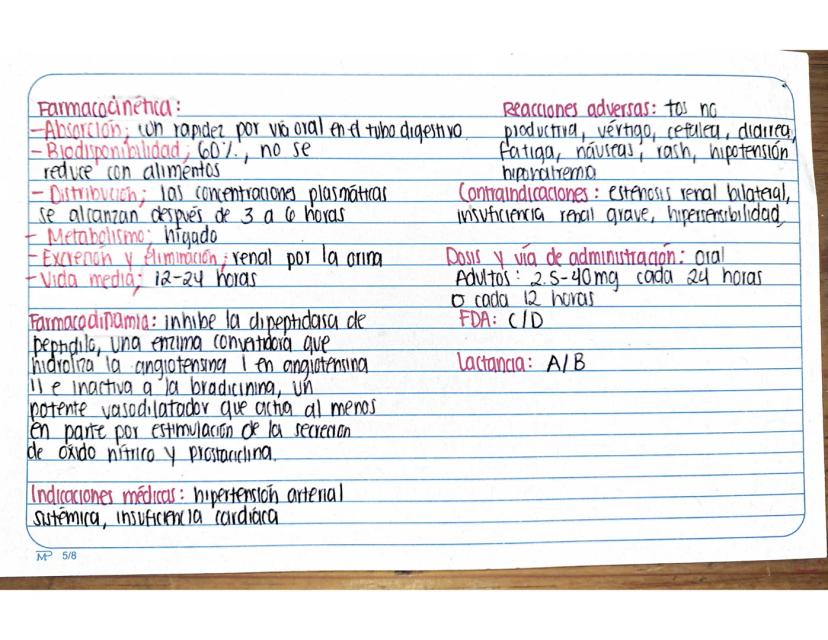 Farmacocinética:
- Absorción; con rapidez por vía oral en el tubo digestivo
- Biodisponibilidad; 60%, no se
reduce con alimentos
- Distribución; las concentraciones plasmáticas
se alcanzan después de 3 a 6 horas
- Metabolismo; hígado
- Excreción y eliminación; renal por la orina
- Vida media; 12-24 horas
Farmacodinamia: inhibe la dipeptidasa de
peptidilo, una enzima convertidora que
hidroliza la angiotensina I en angiotensina
II e inactiva a la bradicinina, un
potente vasodilatador que actúa al menos
en parte por estimulación de la secreción
de óxido nítrico y prostaciclina.
Indicaciones médicas: hipertensión arterial
sistémica, insuficiencia cardíaca
Reacciones adversas: tos no
productiva, vértigo, cefalea, diarrea,
fatiga, náuseas, rash, hipotensión
hiponatremia
Contraindicaciones: estenosis renal bilateral,
insuficiencia renal grave, hipersensibilidad
Dosis y vía de administración: oral
Adultos: 2.5-40mg cada 24 horas
o cada 12 horas
FDA: C/D
Lactancia: A/B
MP 5/8